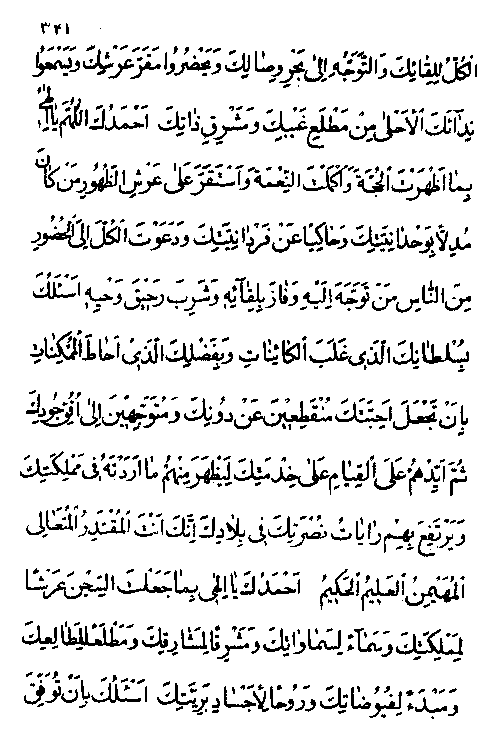 ٣٤١
الكلّ للقائك والتّوجّه الی بحر وصالك ويحضروا مقرّ عرشك ويسمعوا
ندآئك الأحلی من مطلع غيبك ومشرق ذاتك احمدك اللّهمّ يا الهی
بما اظهرت الحجّة وأكملت النّعمة واستقرّ علی عرش الظّهور من كان
مدلّا بوحدانيّتك وحاكيا عن فردانيّتك ودعوت الكلّ الی الحضور
من النّاس من توجّه اليه وفاز بلقآئه وشرب رحيق وحيه اسئلك
بسلطانك الّذی غلب الكائنات وبفضلك الّذی احاط الممكنات
بان تجعل احبّتك منقطعين عن دونك ومتوجّهين الی افق جودك
ثمّ ايّدهم علی القيام علی خدمتك ليظهر منهم ما اردته فی مملكتك
ويرتفع بهم رايات نصرتك فی بلادك انّك انت المقتدر المتعالی
المهيمن العليم الحكيم احمدك يا الهی بما جعلت السّجن عرشا
لمملكتك وسمآء لسماواتك ومشرقا لمشارقك ومطلعا لمطالعك
ومبدء لفيوضاتك وروحا لأجساد بريّتك اسئلك بان توفّق